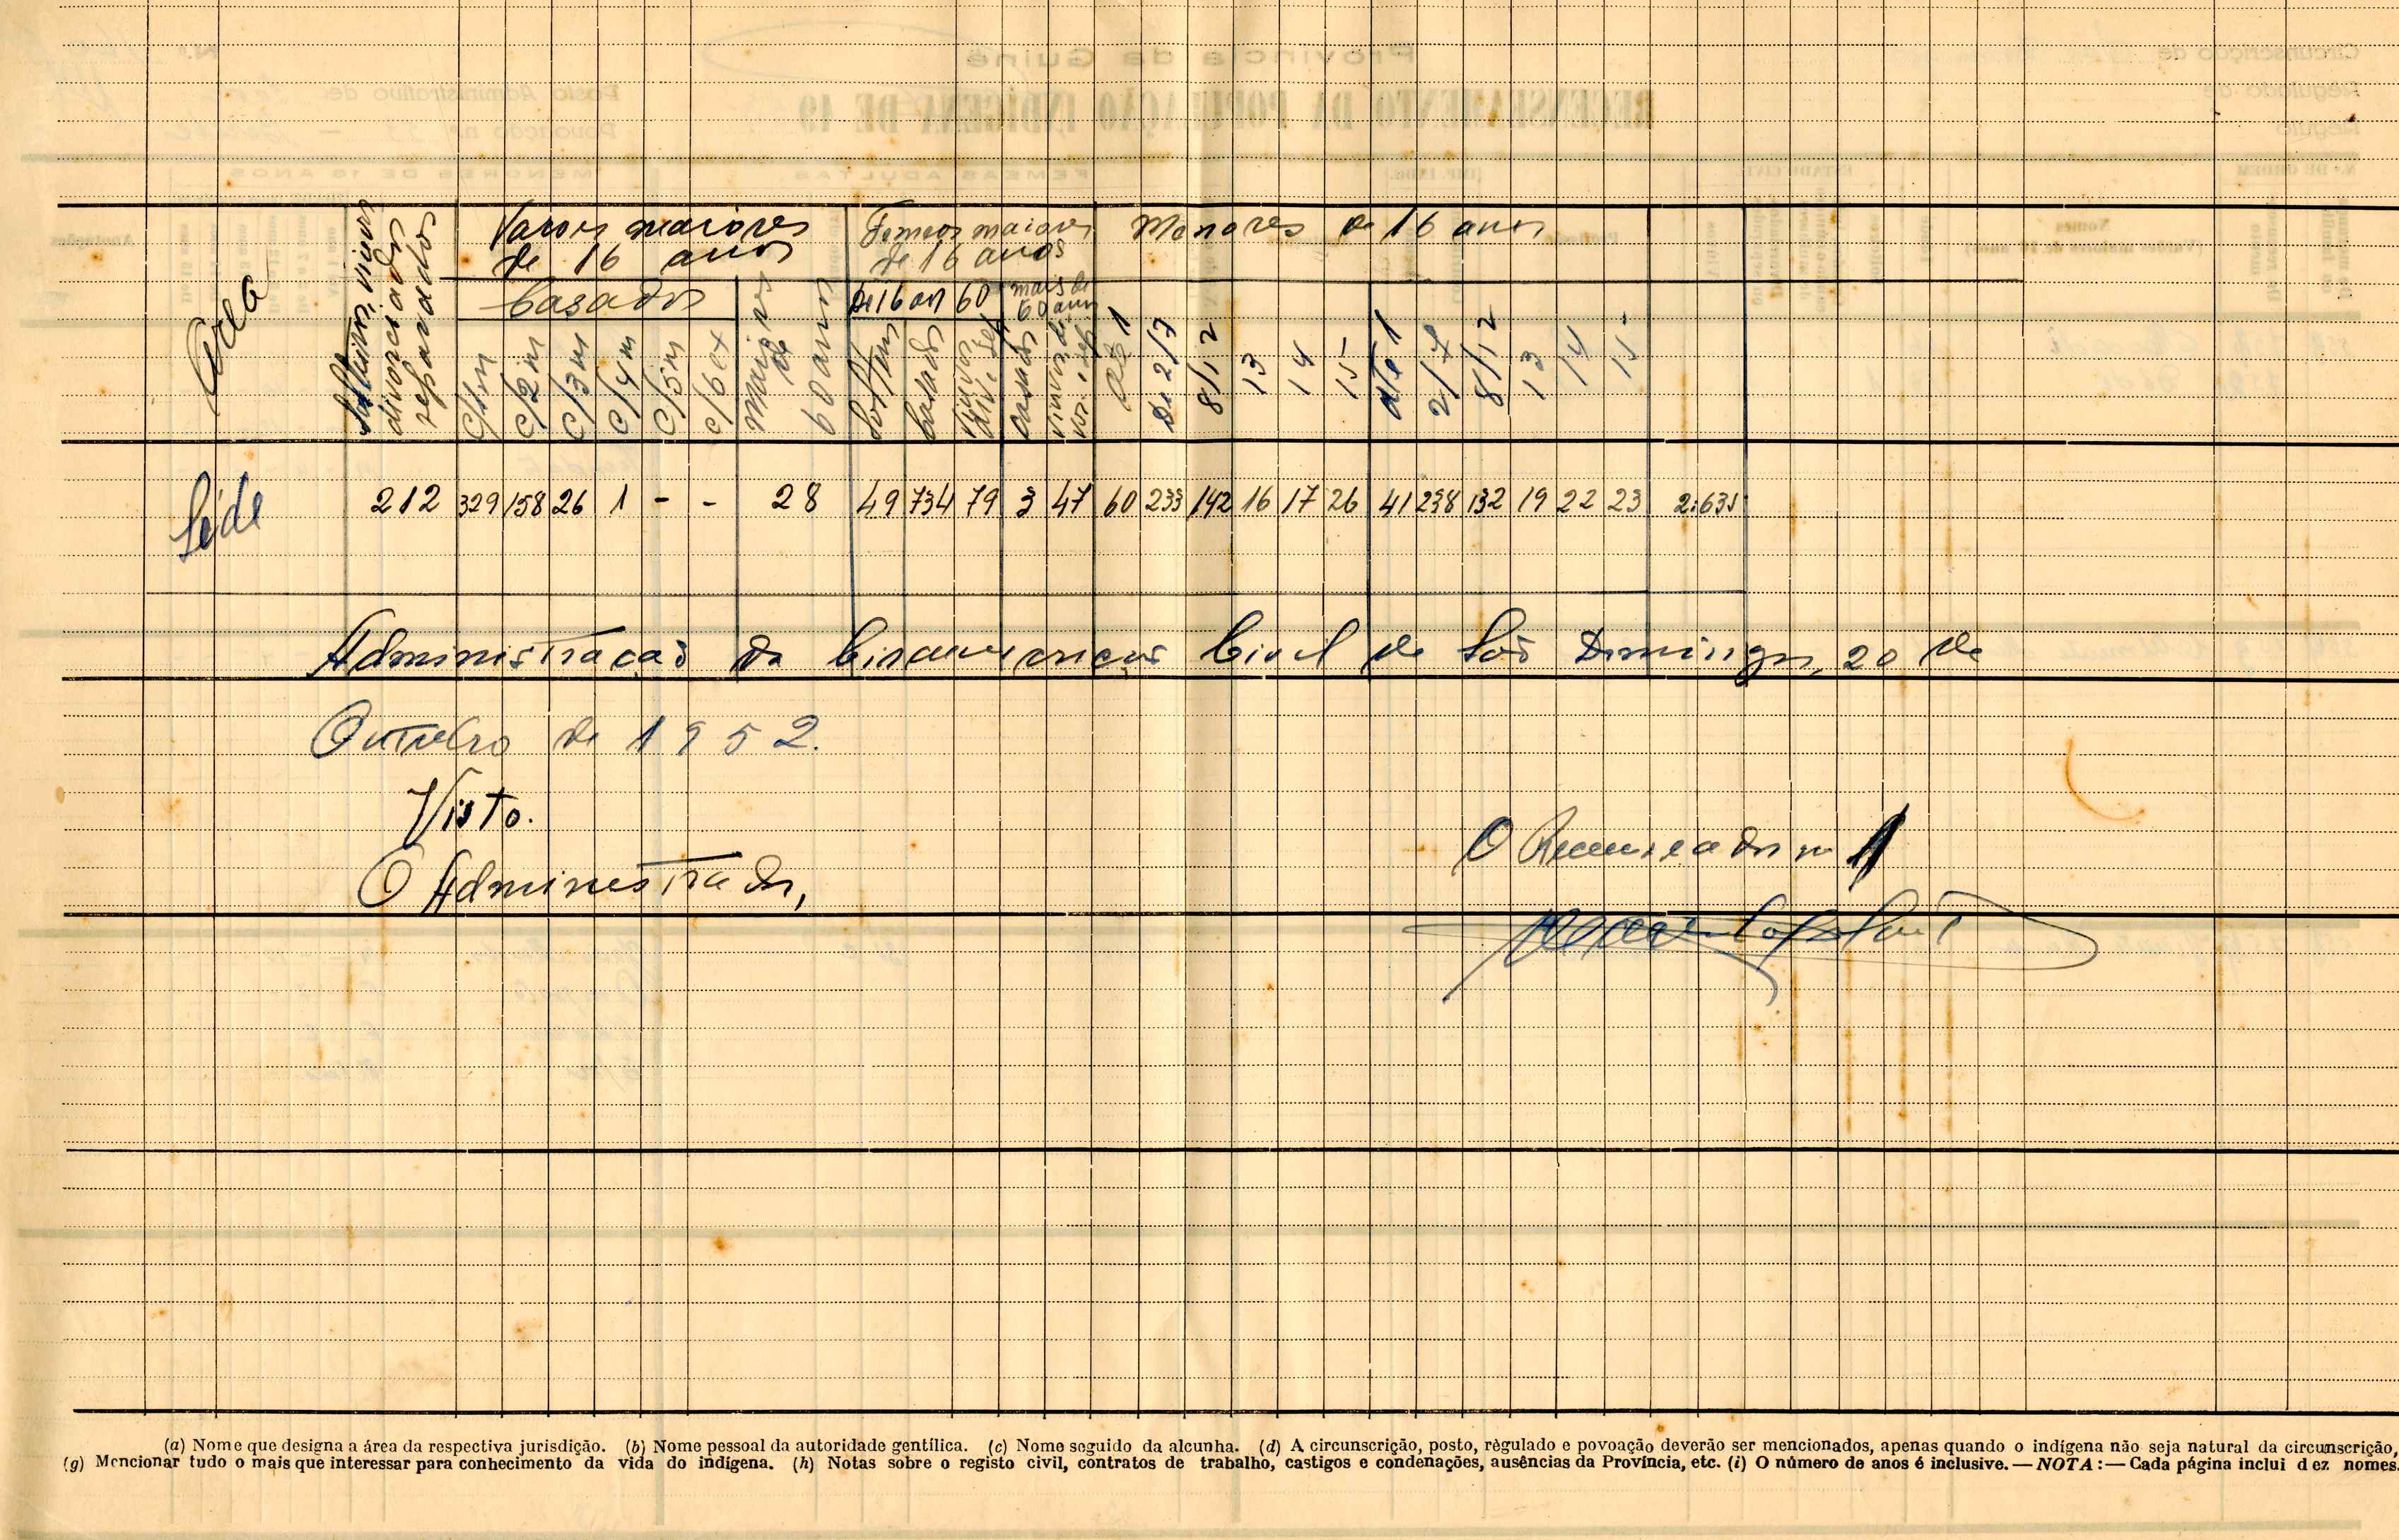 Área
Solteiros, viúvos
divorciados
separados
Varões maiores
de 16 anos
Casados
c/1m
c/2m
c/3m
c/4m
c/5m
c/6ex
Maiores
de
60 anos
Femeas maiores
de 16 anos
De 16 an 60
mais de
60 anos
Solteiras
Casadas
viúvas
casadas
viúvas
Menores de 16 anos
até 1
De 2/7
8/12
13
14
15
até 1
2/7
8/12
13
14
15
Séde 212 329 158 26 1 - - 28 49 734 79 3 47 60 233 142 16 17 26 41 238 132 19 22 23 2:635
Administração da Circunscrição Civil de São Domingos, 20 de
Outubro de 1952.
Visto.
O Administrador,
O Recenseador
(a) Nome que designa a área da respectiva jurisdição. (b) Nome pessoal da autoridade gentílica. (c) Nome seguido da alcunha. (d) A circunscrição, posto, régulado e povoação deverão ser mencionados, apenas quando o indígena não seja natural da circunscrição,
(g) Mencionar tudo o mais que interessar para conhecimento da vida do indígena. (h) Notas sobre o registo civil, contratos de trabalho, castigos e condenações, ausências da Província, etc. (i) O número de anos é inclusive. — NOTA : — Cada página inclui dez nomes.